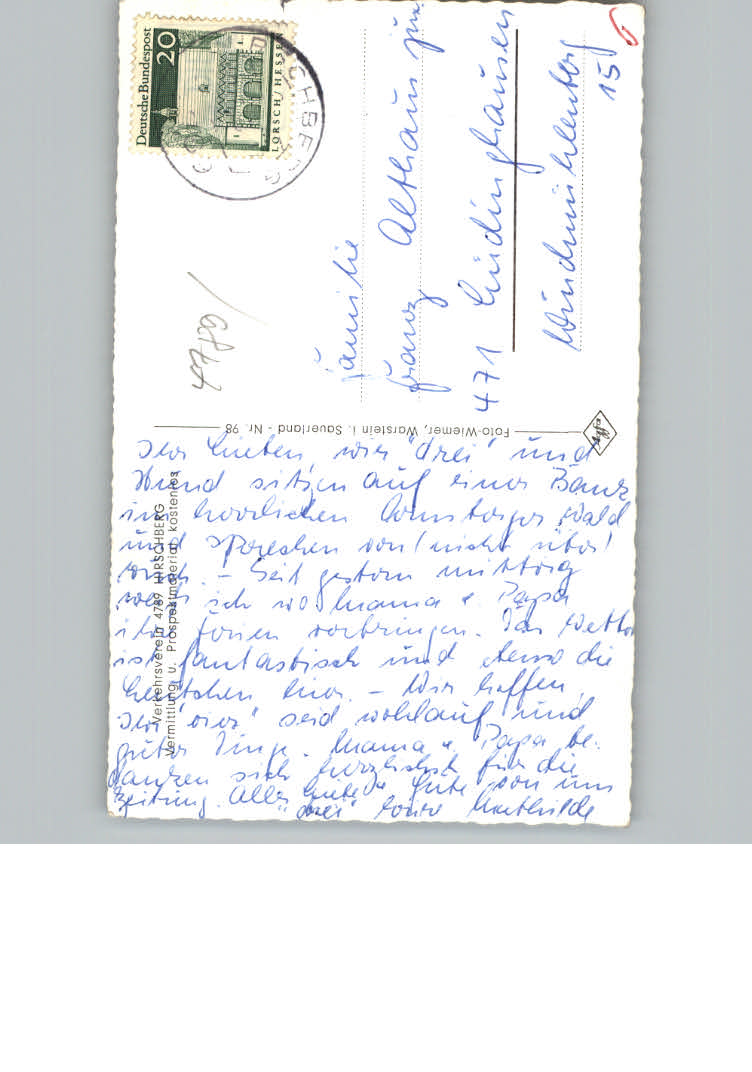 Deutsche Bundespost
20
LORSCH/HESSEN
Familie
Franz Althaus jun.
471 Lüdinghausen
Windmühlenberg
15
Foto-Wiemer, Warstein i. Sauerland - Nr. 98
Agfa
Verkehrsverein 4789 HIRSCHBERG
Vermittlung u. Prospektmaterial kostenlos
Ihr Lieben, wir "drei" und
Hund sitzen auf einer Bank
im herrlichen Arnsberger Wald
und sprechen von (nicht über)
Euch. - Seit gestern mittag
ich wo Mama u. Papa
ihre Ferien verbringen. Das Wetter
ist fantastisch und ebenso die
Leutchen hier. - Wir hoffen,
Ihr "vier" seid wohlauf und
guter Dinge. Mama u. Papa be-
danken sich herzlichst für die
Zeitung. Alles Liebe u. Gute von uns
"drei" Eure Mathilde